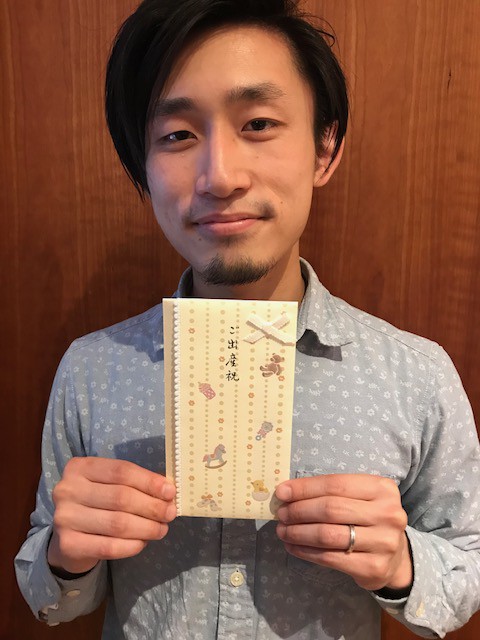 ご出産祝